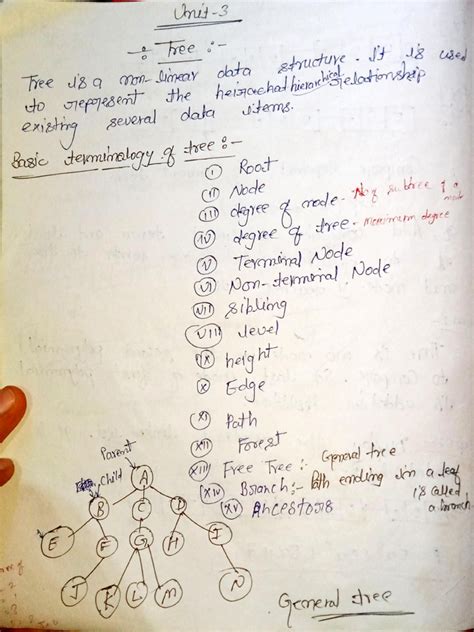 Unit-3
-: Tree :-
Tree is a non-linear data structure. It is used
to represent the heirachal hierarchical relationship
existing several data items.
Basic terminalogy of tree :-
(i) Root
(ii) Node
(iii) degree of node - No of subtree of a node
(iv) degree of tree - maximum degree
(v) Terminal Node
(vi) Non-terminal Node
(vii) sibling
(viii) level
(ix) height
(x) Edge
(xi) Path
(xii) Forest
(xiii) Free Tree :- General tree
(xiv) Branch :- Path ending in a leaf
is called
a branch
(xv) Ancestors
Parent
Child
A
B C D
E F G H I
J K L M N
General tree